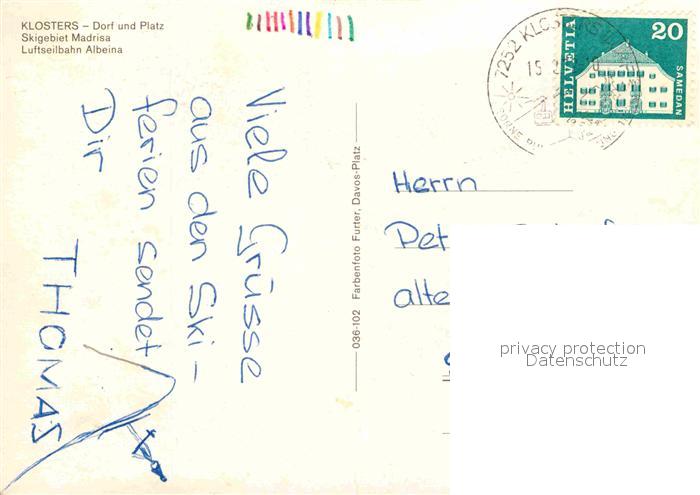 KLOSTERS – Dorf und Platz
Skigebiet Madrisa
Luftseilbahn Albeina
Viele Grüsse
aus den Ski-
ferien sendet
Dir
THOMAS
036-102 Farbenfoto Furter, Davos-Platz
7252 KLOSTERS
15. 2.
HELVETIA
20
SAMEDAN
Herrn
Pet
alte
privacy protection
Datenschutz